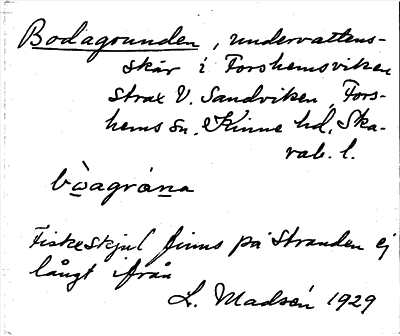 Bodagrunden, undervattens-
skär i Forshemsviken
strax V. Sandviken, Fors-
hems sn. Kinne hd, Ska-
rab. l.
bòagrána
Fiskeskjul finns på stranden ej
långt ifrån
L. Madsén 1929